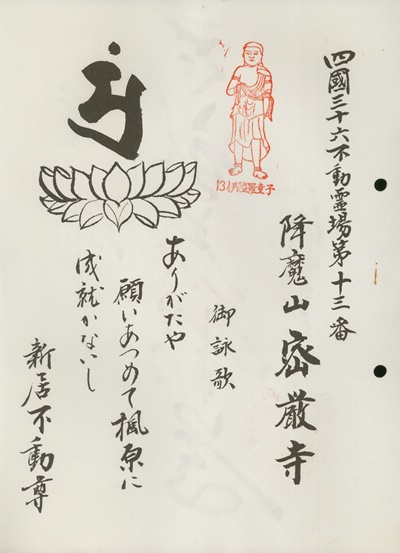 四國三十六不動霊場第十三番
降魔山 密厳寺
御詠歌
ありがたや
願いあつめて楓原に
成就かないし
新居不動尊
羅童子